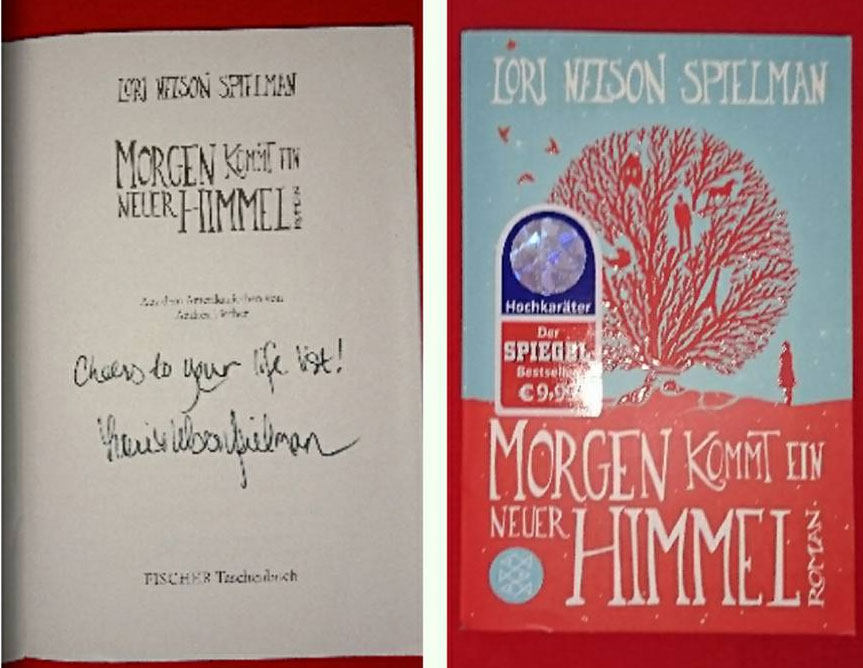 LORI NELSON SPIELMAN
MORGEN KOMMT EIN
NEUER HIMMEL
ROMAN
Aus dem Amerikanischen von
Andrea Fischer
Cheers to your life list!
Lori Nelson Spielman
FISCHER Taschenbuch
LORI NELSON SPIELMAN
Hochkaräter
Der
SPIEGEL
Bestseller
€9,99
MORGEN KOMMT EIN
NEUER HIMMEL
ROMAN